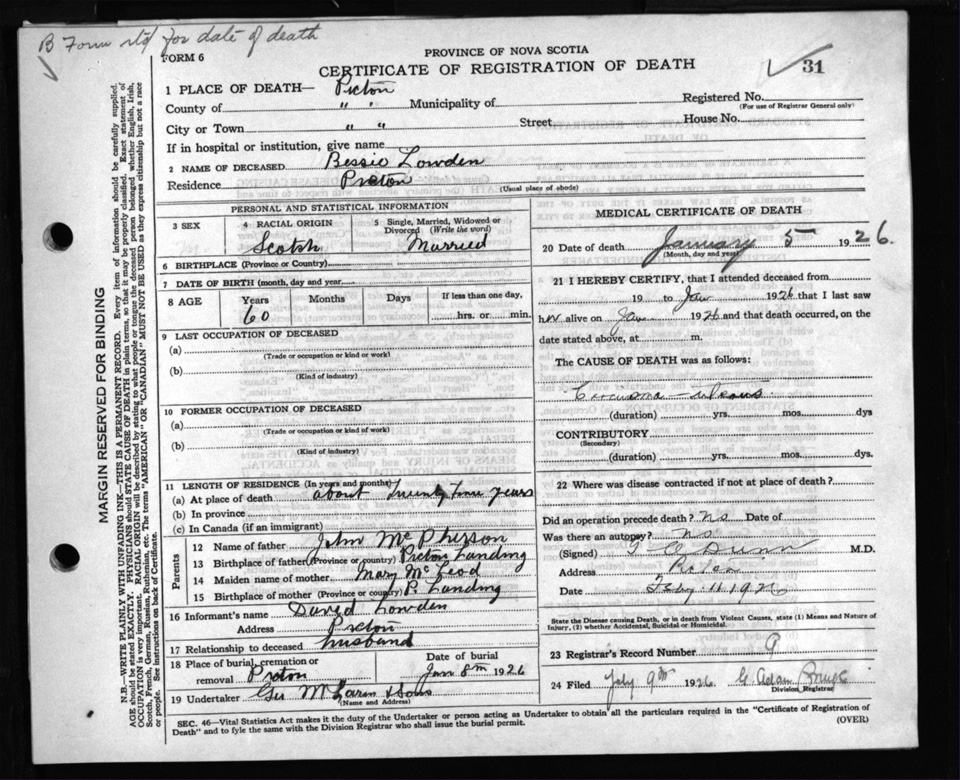 B Form std for date of death
FORM 6
PROVINCE OF NOVA SCOTIA
CERTIFICATE OF REGISTRATION OF DEATH
31
1 PLACE OF DEATH— Pictou
County of " " Municipality of
Registered No.
(For use of Registrar General only)
City or Town " " Street House No.
If in hospital or institution, give name
2 NAME OF DECEASED Bessie Lowden
Residence Pictou
(Usual place of abode)
PERSONAL AND STATISTICAL INFORMATION
3 SEX
4 RACIAL ORIGIN Scotch
5 Single, Married, Widowed or Divorced (Write the word) Married
6 BIRTHPLACE (Province or Country)
7 DATE OF BIRTH (month, day and year)
8 AGE Years Months Days If less than one day,
60 hrs. or min.
9 LAST OCCUPATION OF DECEASED
(a)
(Trade or occupation or kind or work)
(b)
(Kind of industry)
10 FORMER OCCUPATION OF DECEASED
(a)
(Trade or occupation or kind or work)
(b)
(Kind of industry)
11 LENGTH OF RESIDENCE (In years and months)
(a) At place of death about Twenty years
(b) In province
(c) In Canada (if an immigrant)
Parents
12 Name of father John McPherson
13 Birthplace of father (Province or country) Pictou Landing
14 Maiden name of mother Mary McLeod
15 Birthplace of mother (Province or country) P. Landing
16 Informant's name David Lowden
Address Pictou
17 Relationship to deceased husband
18 Place of burial, cremation or removal Pictou
Date of burial Jan 8th 1926
19 Undertaker Geo McLaren & Sons
(Name and Address)
MEDICAL CERTIFICATE OF DEATH
20 Date of death January 5 1926.
(Month, day and year)
21 I HEREBY CERTIFY, that I attended deceased from
19 to Jan 1926 that I last saw
her alive on Jan 1926 and that death occurred, on
date stated above, at m.
The CAUSE OF DEATH was as follows:
(duration) yrs. mos. dys
CONTRIBUTORY
(Secondary)
(duration) yrs. mos. dys.
22 Where was disease contracted if not at place of death?
Did an operation precede death? no Date of
Was there an autopsy? no
(Signed) Dunn M.D.
Address Pictou
Date Feby 11 1926
State the Disease causing Death, or in death from Violent Causes, state (1) Means and Nature of
Injury, (2) whether Accidental, Suicidal or Homicidal.
23 Registrar's Record Number 9
24 Filed July 9th 1926 G. Adam
Division Registrar
SEC. 46—Vital Statistics Act makes it the duty of the Undertaker or person acting as Undertaker to obtain all the particulars required in the "Certificate of Registration of
Death" and to fyle the same with the Division Registrar who shall issue the burial permit. (OVER)
MARGIN RESERVED FOR BINDING
N.B.—WRITE PLAINLY WITH UNFADING INK—THIS IS A PERMANENT RECORD. Every item of information should be carefully supplied.
AGE should be stated EXACTLY. PHYSICIANS should STATE CAUSE OF DEATH in plain terms, so that it may be properly classified. Exact statement of
OCCUPATION is very important. RACIAL ORIGIN will be described by stating to what people or tongue the deceased person belonged whether English, Irish,
Scotch, French, German, Russian, Ruthenian, etc. The terms "AMERICAN" OR "CANADIAN" MUST NOT BE USED as they express citizenship but not a race
or people. See instructions on back of Certificate.